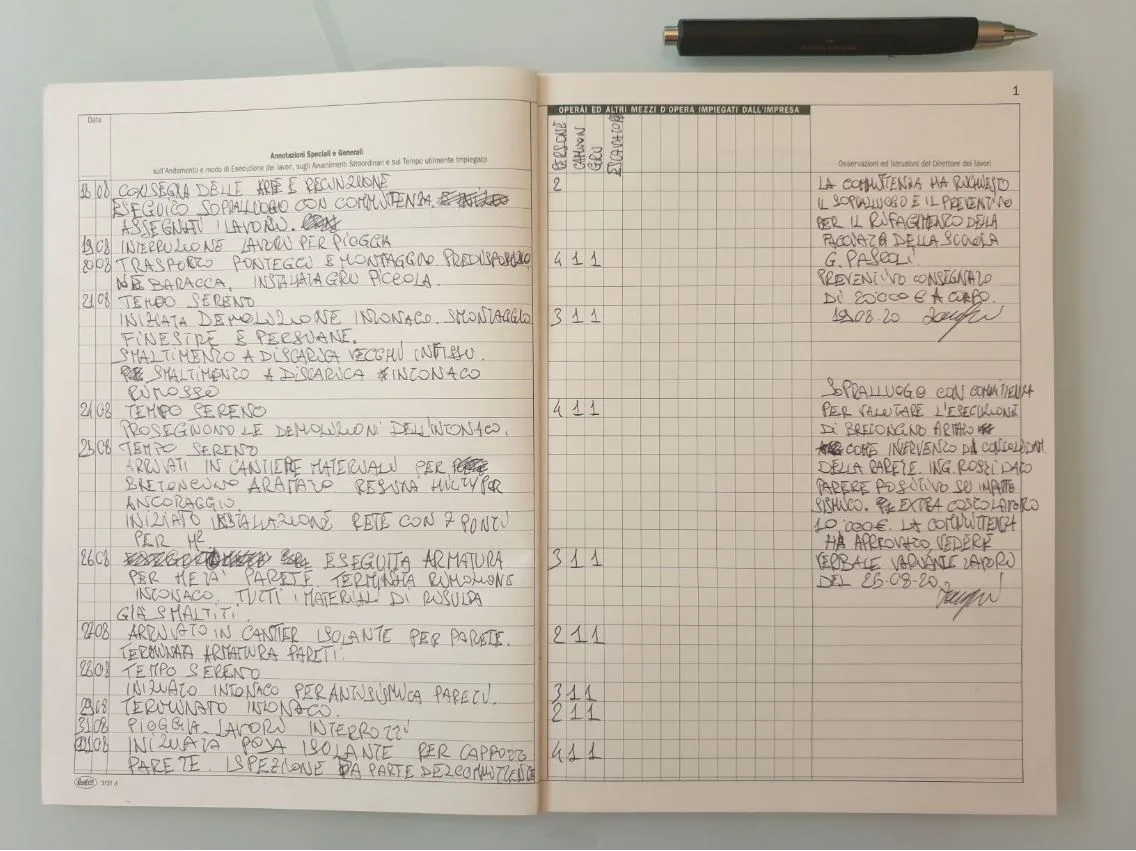 1
OPERAI ED ALTRI MEZZI D'OPERA IMPIEGATI DALL'IMPRESA
Data
Annotazioni Speciali e Generali
sull'Andamento e modo di Esecuzione dei lavori, sugli Avvenimenti Straordinari e sul Tempo utilmente Impiegato
PERSONE
CAMION
GRU
ESCAVATORE
Osservazioni ed Istruzioni del Direttore dei lavori
18 08 CONSEGNA DELLE E RECINZIONE 2
ESEGUITO SOPRALLUOGO CON COMMITTENZA
ASSEGNATI I LAVORI.
19 08 INTERRUZIONE LAVORI PER PIOGGIA
20 08 TRASPORTO PONTEGGI E MONTAGGIO 4 1 1
NE BARACCA, INSTALLATA GRU PICCOLA.
21 08 TEMPO SERENO
INIZIATA DEMOLIZIONE INTONACO. SMONTAGGIO 3 1 1
FINESTRE E PERSIANE.
SMALTIMENTO A DISCARICA VECCHI INFISSI.
SMALTIMENTO A DISCARICA INTONACO
RIMOSSO
24 08 TEMPO SERENO 4 1 1
PROSEGUONO LE DEMOLIZIONI DELL'INTONACO.
25 08 TEMPO SERENO
ARRIVATI IN CANTIERE MATERIALI PER
ARMATO RESINA PER
ANCORAGGIO.
INIZIATO INSTALLAZIONE RETE CON 7 PONTI
PER M2
26 08 ESEGUITA ARMATURA 3 1 1
PER META' PARETE. TERMINATA RIMOZIONE
INTONACO. TUTTI I MATERIALI DI RISULTA
GIA SMALTITI.
27 08 ARRIVATO IN CANTIER ISOLANTE PER PARETE. 2 1 1
TERMINATA ARMATURA PARETI.
28 08 TEMPO SERENO
INIZIATO INTONACO PER ANTISISMICA PARETI. 3 1 1
29 08 TERMINATO INTONACO. 2 1 1
31 08 PIOGGIA. LAVORI INTERROTTI
INIZIATA POSA ISOLANTE PER CAPPOTTO 4 1 1
PARETE. ISPEZIONE DA PARTE DEL COMMITTENTE
Buffetti 3131 A
LA COMMITTENZA HA RICHIESTO
IL SOPRALUOGO E IL PREVENTIVO
PER IL RIFACIMENTO DELLA
FACCIATA DELLA SCUOLA
G. PASCOLI
PREVENTIVO CONSEGNATO
DI 20'000 € A CORPO.
08-20
SOPRALLUOGO CON COMMITTENZA
PER VALUTARE L'ESECUZIONE
DI ARMATO
COME INTERVENTO DI CONSOLIDAM.
DELLA PARETE. ING. ROSSI DATO
PARERE POSITIVO SU IMPATTO
SISMICO. EXTRA COSTO LAVORO
10'000€. LA COMMITTENZA
HA APPROVATO, VEDERE
VERBALE VARIANTE LAVORI
DEL 25-08-20.